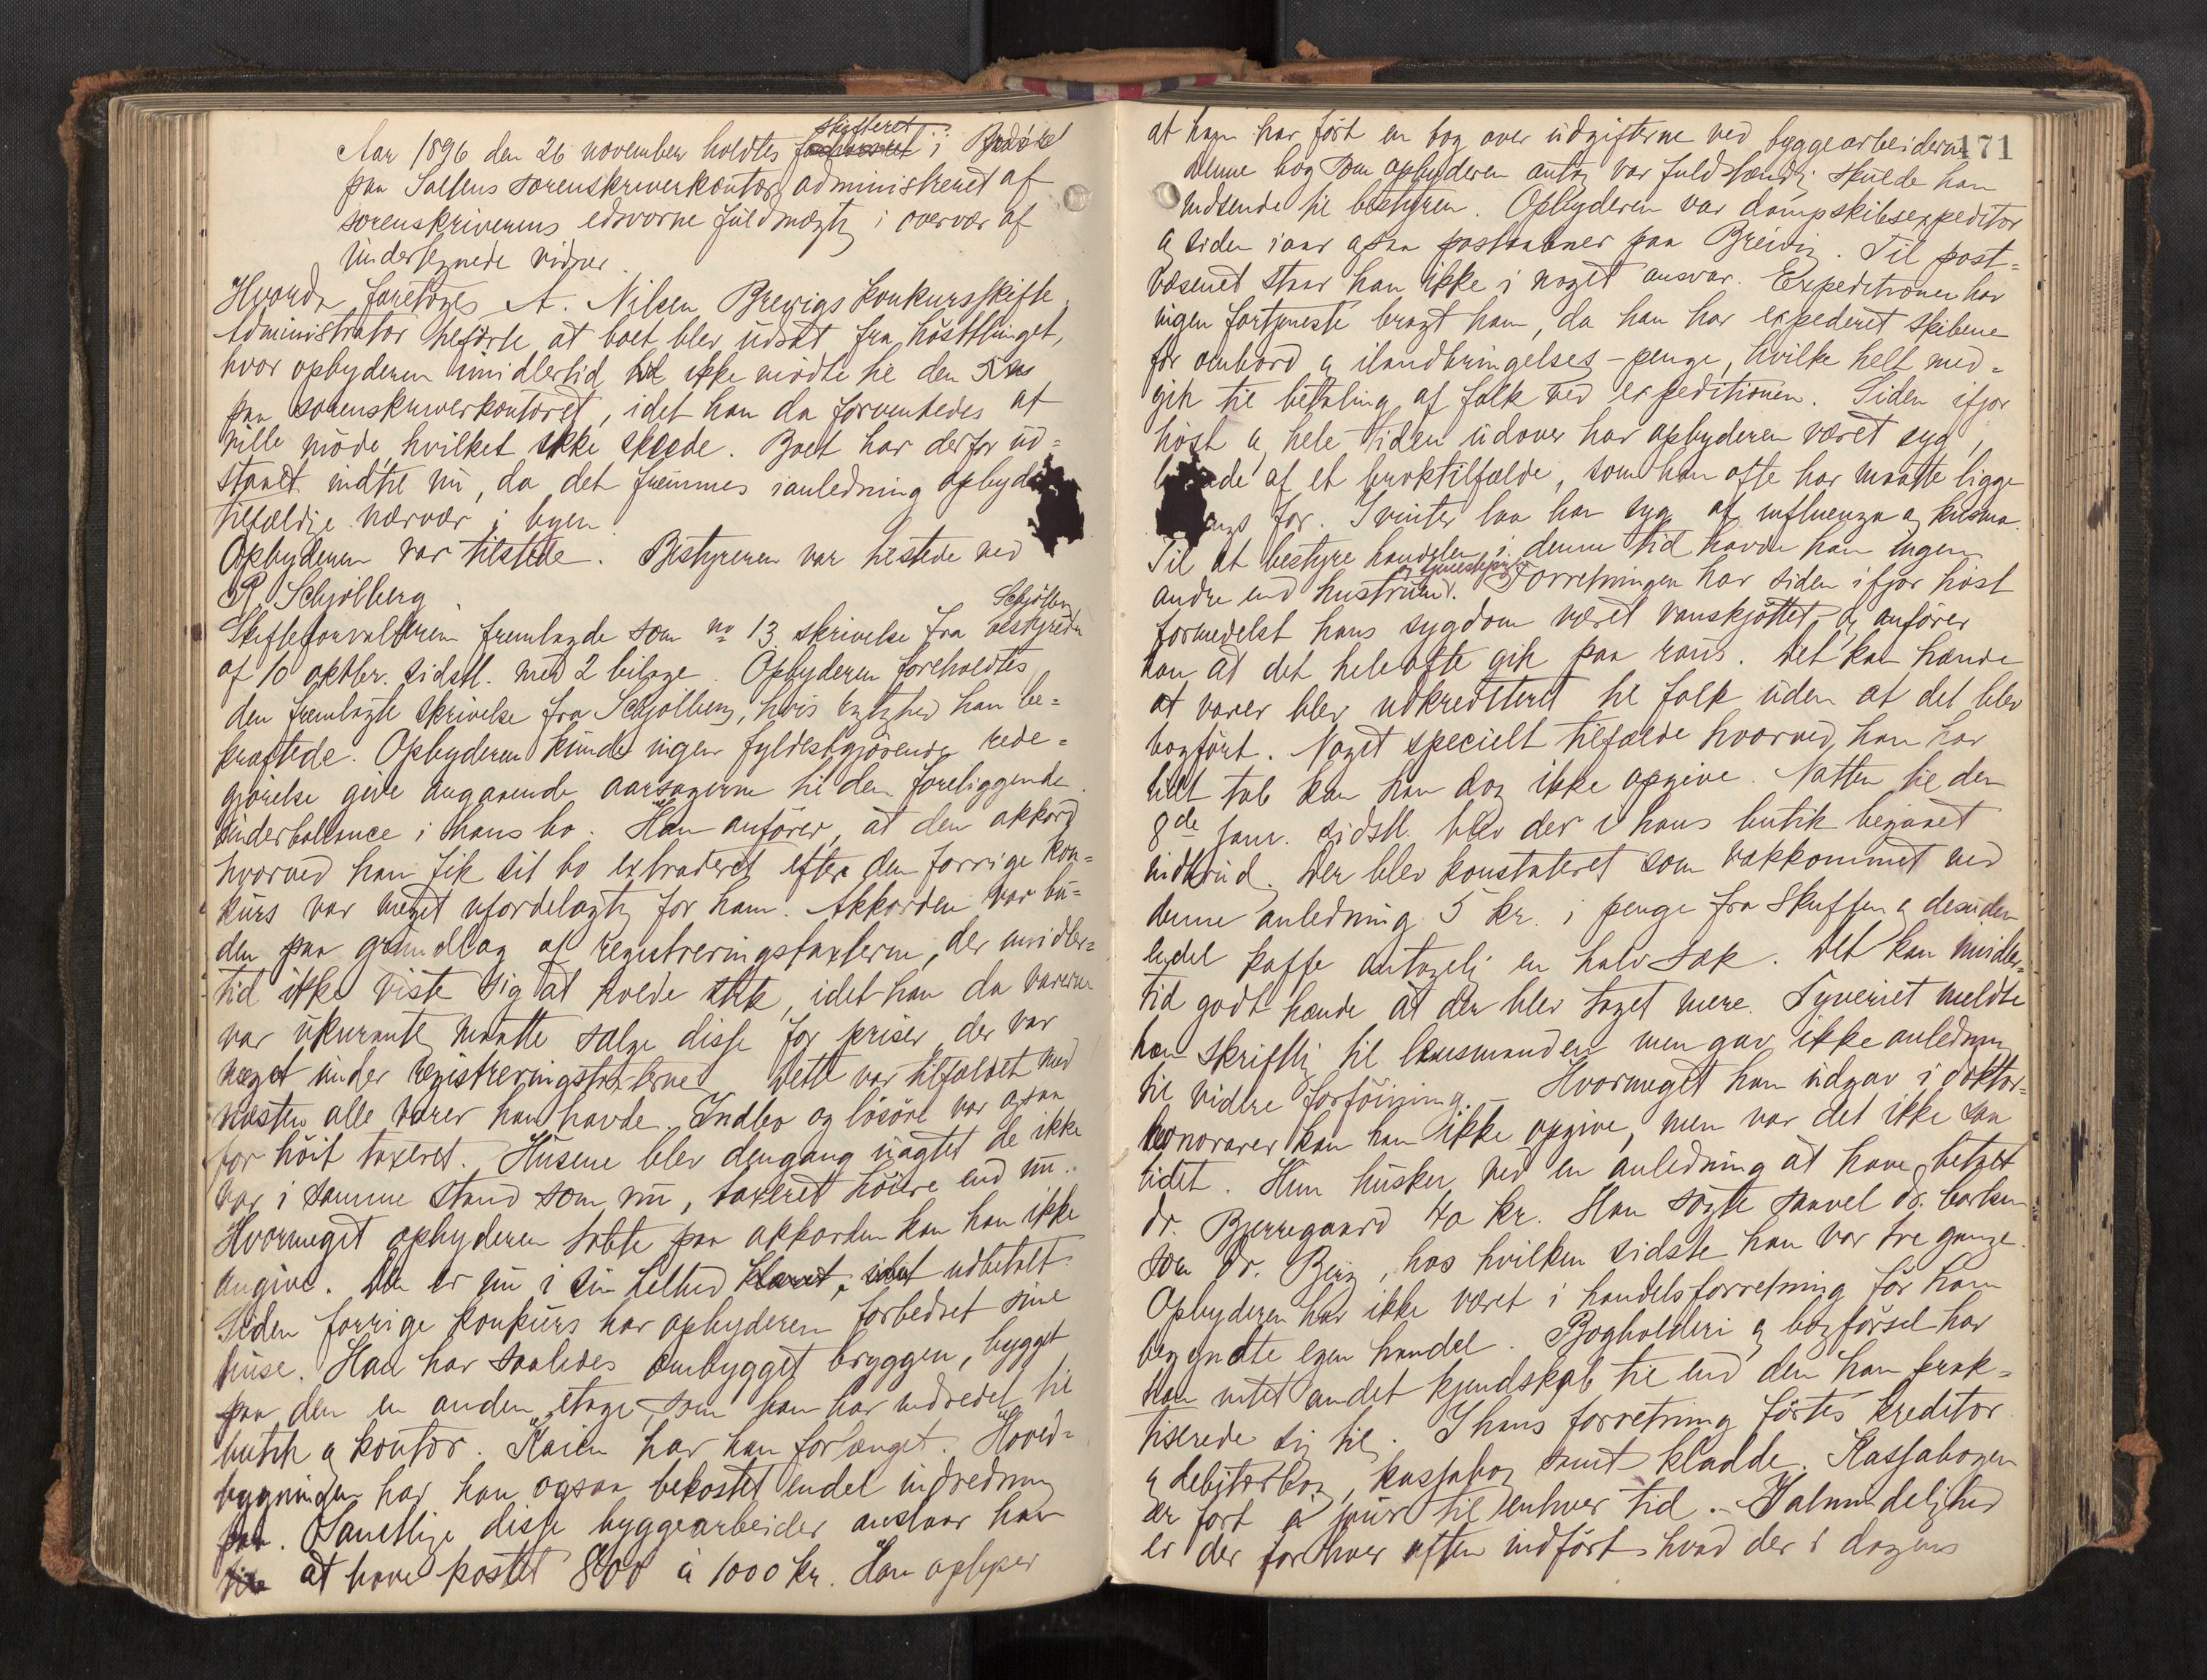 Aar 1896 den 26 november holdtes skifteret i Bodø
paa Saltens sorenskriverkontor administreret af
sorenskriverens edsvorne fuldmægtig i overvær af
undertegnede vidner.
Hvorda foretoges A. Nilsen Brevigs konkursskifte.
Administrator tilførte at boet blev udsat fra høstthinget,
hvor opbyderen imidlertid ikke mødte til den
paa sorenskriverkontoret, idet han da forventedes at
ville møde, hvilket ikke skeede. Boet har derfor ud=
staaet indtil nu, da det fremmes ianledning opbyd
tilfældige nærvær i byen
Opbyderen var tilstede. Bestyreren var tilstede ved
R. Schjølberg
Skifteforvalteren fremlagde som no 13 skrivelse fra bestyreren Schjølberg
af 10 oktbr. sidstl. med 2 bilage. Opbyderen foreholdtes
den fremlagte skrivelse fra Schjølberg, hvis rigtighed han be=
kræftede. Opbyderen kunde ingen fyldestgjørende rede=
gjørelse give angaaende aarsagerne til den foreliggende
underballance i hans bo. Han anfører, at den akkord
hvorved han fik sit bo extraderet efter den forrige kon=
kurs var meget ufordelagtig for ham. Akkorden var bu=
den paa grundlag af registreringstaxterne, der imidler=
tid ikke viste sig at holde stik, idet han da varerne
var ukurante maatte sælge disse for priser der var
meget under registreringstaxterne. Dette var tilfældet med
næsten alle varer han havde. Indbo og løsøre var ogsaa
for høit taxeret. Husene blev dengang uagtet de ikke
var i samme stand som nu, taxeret høiere end nu.
Hvormeget opbyderen tabte paa akkorden kan han ikke
angive. Den er nu i sin helhed udbetalt.
Siden forrige konkurs har opbyderen forbedret sine
huse. Han har saaledes ombygget bryggen, bygget
paa den en anden etage, som han har indredet til
butik og kontor. Kaien har han forlænget. Hoved=
bygningen har han ogsaa bekostet endel indredning
paa. Samtlige disse byggearbeider anslaar han
til at have kostet 800 à 1000 kr. Han oplyser
171
at han har ført en bog over udgifterne ved byggearbeiderne
denne bog som opbyderen antog var fuldstændig skulde han
indsende til bestyreren. Opbyderen var dampskibsexpeditør
og siden iaar ogsaa postaabner paa Breivig. Til post=
væsenet staar han ikke i noget ansvar. Expeditionen har
ingen fortjeneste bragt ham, da han har expederet skibene
for ombord og ilandbringelses-penge, hvilke helt med=
gik til betaling af folk ved expeditionen. Siden ifjor
høst og hele tiden udover har opbyderen været syg,
af et broktilfælde, som han ofte har maatte ligge
for. I vinter laa han syg af influenza og krisma.
Til at bestyre handelen i denne tid havde han ingen
andre end hustruen og tjenestepige. Forretningen har siden ifjor høst
formedelst hans sygdom været vanskjøttet, og anfører
han at det hele ofte gik paa raus. Det kan hænde
at varer blev udkrediteret til folk uden at det blev
bogført. Noget specielt tilfælde hvorved han har
lidt tab kan han dog ikke opgive. Natten til den
8de janr. sidstl. blev der i hans butik begaaet
indbrud. Der blev konstateret som vækkommet ved
denne anledning 5 kr. i penge fra skuffen og desuden
endel kaffe antagelig en halv sæk. Det kan imidler=
tid godt hænde at der blev taget mere. Tyveriet meldte
han skriftlig til lensmanden men gav ikke anledning
til videre forføining. - Hvormeget han udgav i doktor=
honorarer kan han ikke opgive, men var det ikke saa
lidet. Han husker ved en anledning at have betalt
dr. Bjerregaard 40 kr. Han søgte saavel dr. Carlsen
som dr. Berg, hos hvilken sidste han var tre gange.
Opbyderen har ikke været i handelsforretning før han
begyndte egen handel. Bogholderi og bogførsel har
han intet andet kjendskab til end den han prak=
tiserede sig til. I hans forretning førtes kreditor
og debitorbog, kassabog samt kladde. Kassabogen
er ført à jour til enhver tid. - I almindelighed
er der for hver aften indført hvad der i dagens